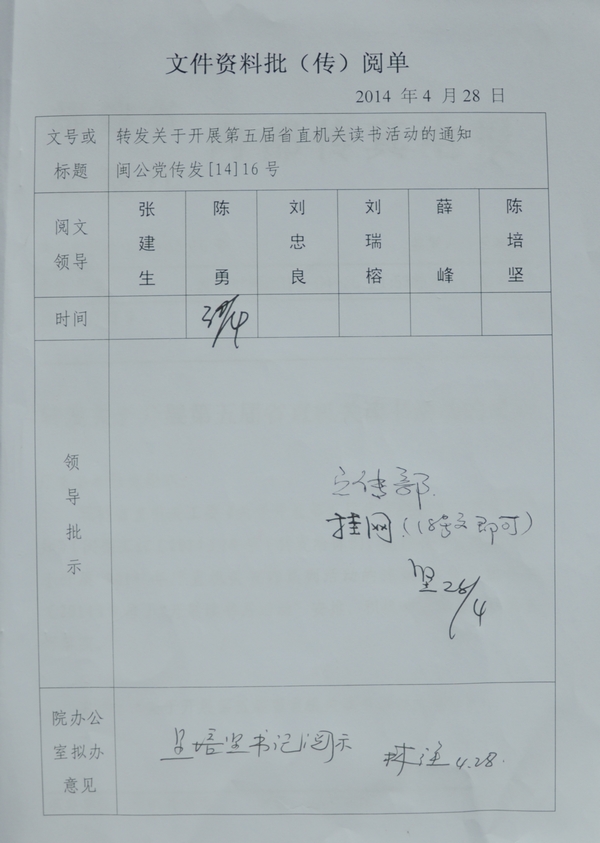 文件资料批（传）阅单
2014 年 4 月 28 日
文号或标题
转发关于开展第五届省直机关读书活动的通知
闽公党传发[14]16 号
阅文领导
张建生
陈勇
刘忠良
刘瑞榕
薛峰
陈培坚
时间
领导批示
宣传部.
挂网（18号文即可）
坚 28/4
院办公室拟办意见
呈培坚书记阅示
4.28.